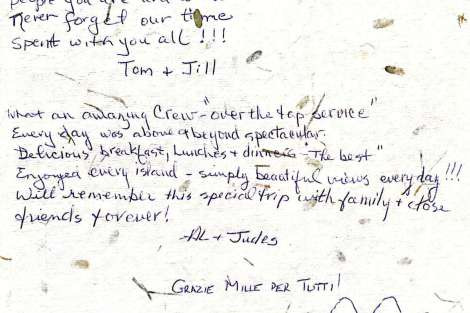 people you are and
Never forget our time
Spent with you all !!!
Tom + Jill
What an amazing Crew - "over the top service"
Every day was above & beyond spectacular.
Delicious breakfast, lunches + dinners - The best"
Enjoyed every island - simply beautiful views everyday !!!
Will remember this special trip with family + close
friends forever!
-AL + Judes
GRAZIE MILLE PER TUTTI!